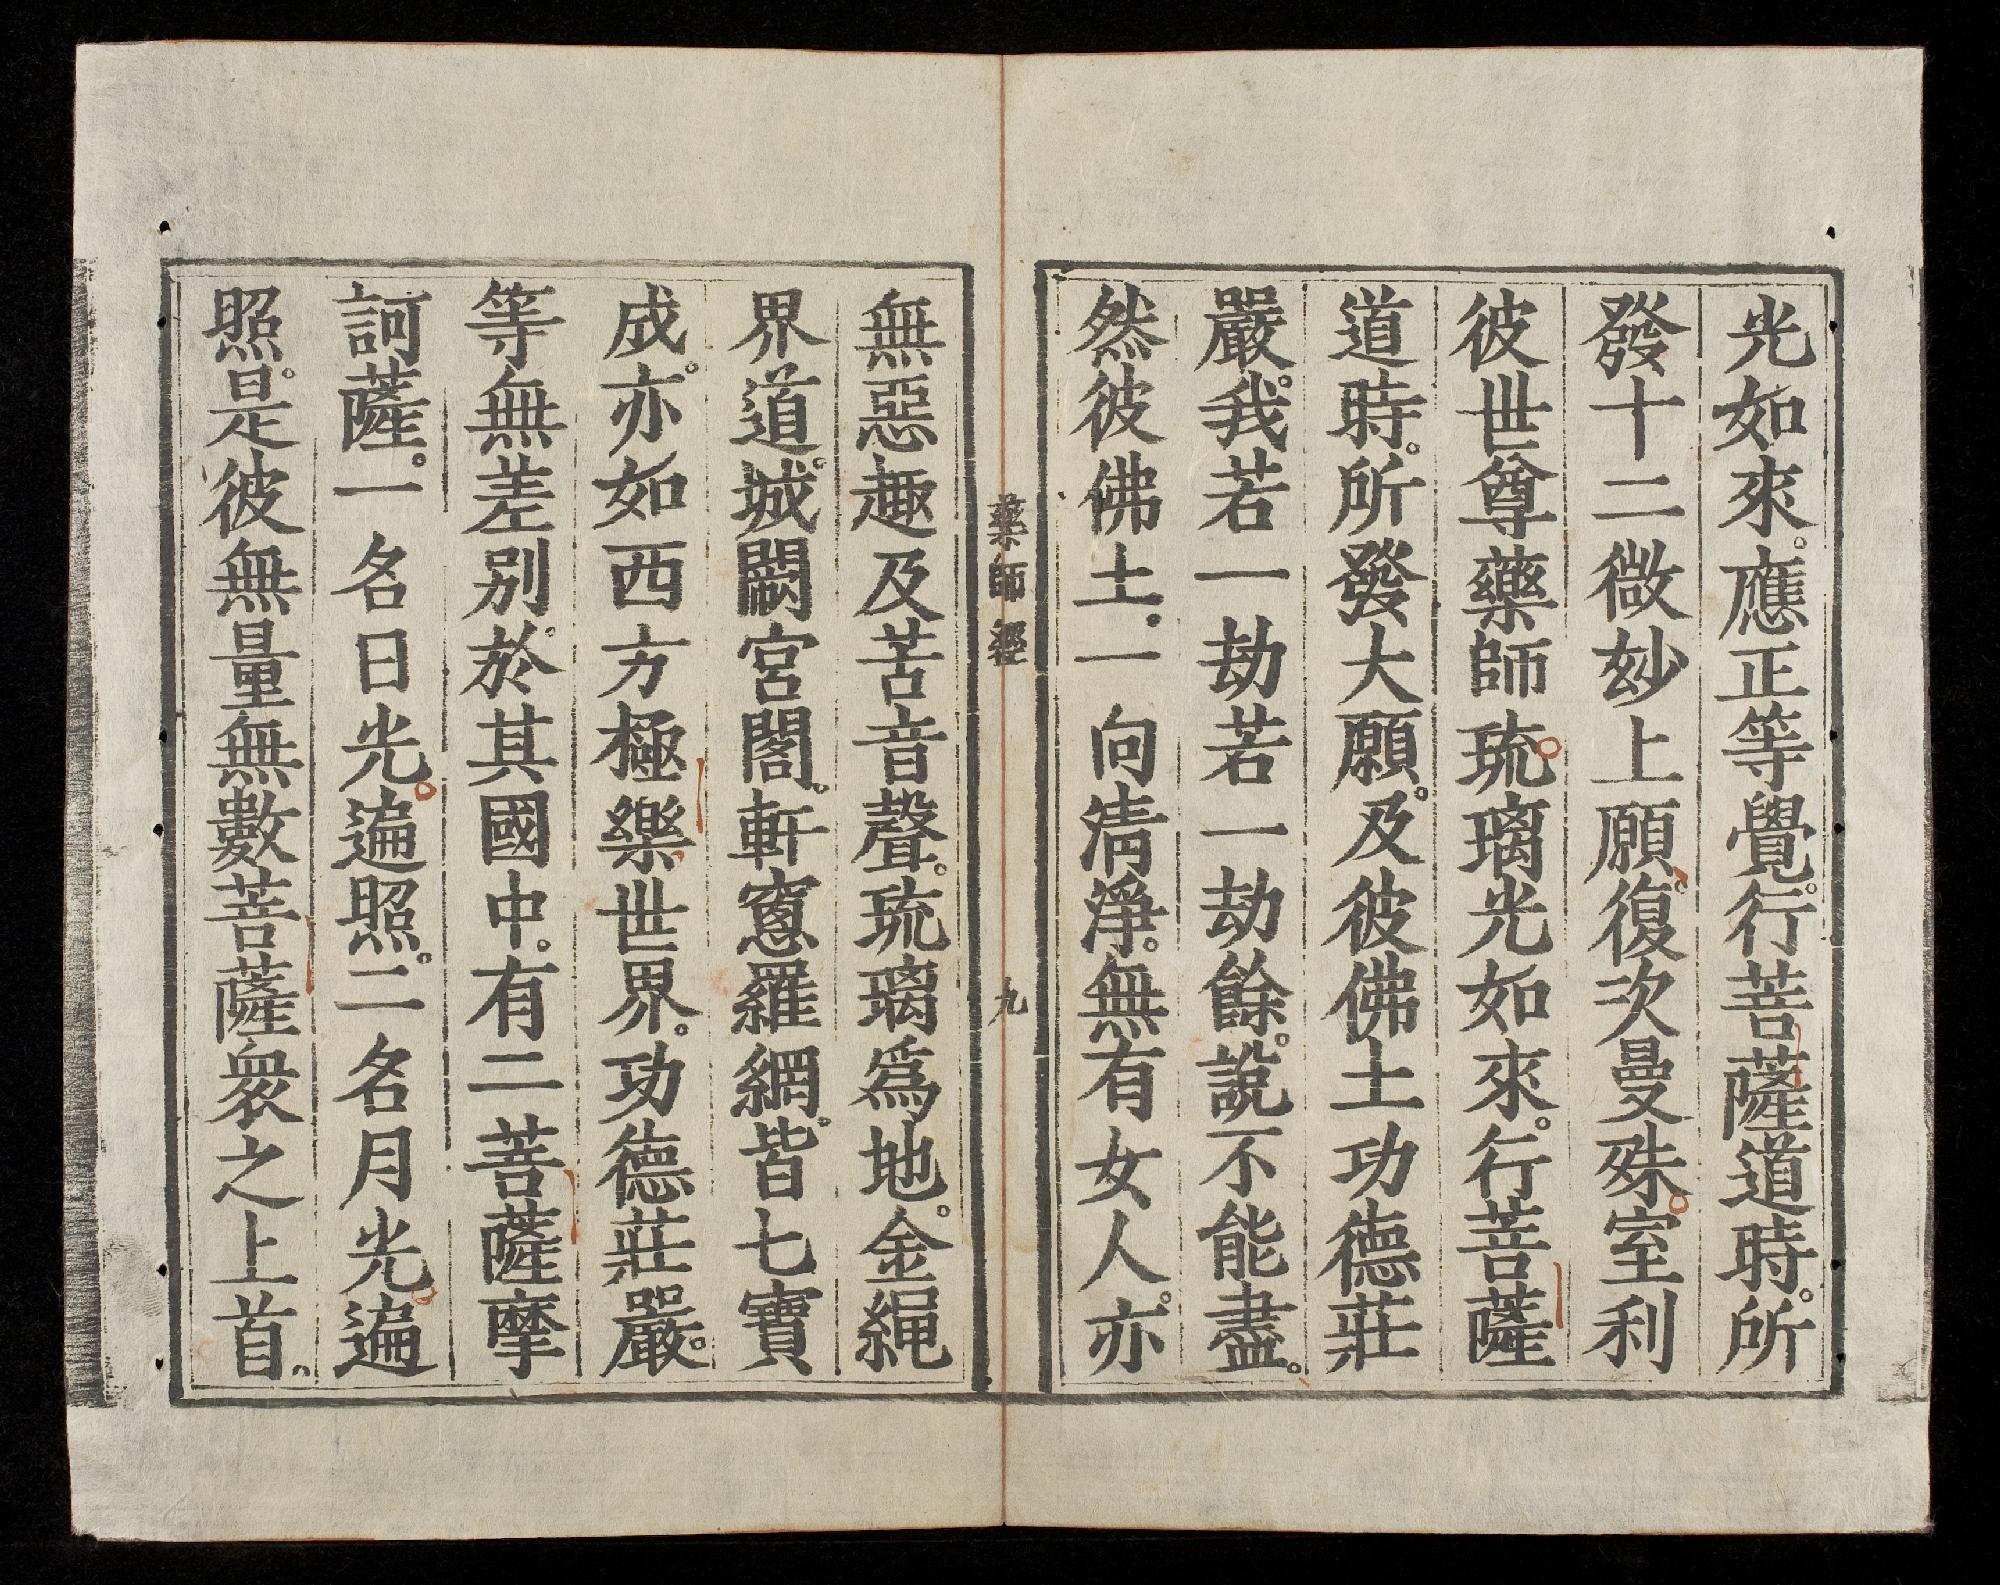 光如來。應正等覺。行菩薩道時。所
發十二微妙上願。復次曼殊室利
彼世尊藥師琉璃光如來。行菩薩
道時。所發大願。及彼佛土功德莊
嚴。我若一劫若一劫餘。說不能盡。
然彼佛土。一向淸淨。無有女人。亦
藥師經 九
無惡趣及苦音聲。琉璃爲地。金繩
界道。城闕宮閣。軒窻羅網。皆七寶
成。亦如西方極樂世界。功德莊嚴。
等無差別。於其國中。有二菩薩摩
訶薩。一名日光。遍照。二名月光。遍
照。是彼無量無數菩薩衆之上首。